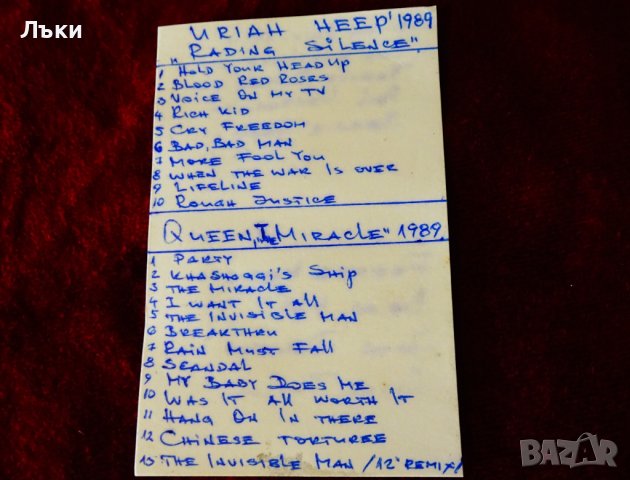 Лъки
URIAH HEEP' 1989
"RADING SILENCE"
1 HOLD YOUR HEAD UP
2 BLOOD RED ROSES
3 VOICE ON MY TV
4 RICH KID
5 CRY FREEDOM
6 BAD, BAD MAN
7 MORE FOOL YOU
8 WHEN THE WAR IS OVER
9 LIFELINE
10 ROUGH JUSTICE
QUEEN, "THE MIRACLE" 1989.
1 PARTY
2 KHASHOGGI'S SHIP
3 THE MIRACLE
4 I WANT IT ALL
5 THE INVISIBLE MAN
6 BREAKTHRU
7 RAIN MUST FALL
8 SCANDAL
9 MY BABY DOES ME
10 WAS IT ALL WORTH IT
11 HANG ON IN THERE
12 CHINESE TORTUREE
13 THE INVISIBLE MAN /12" REMIX/
BAZAR